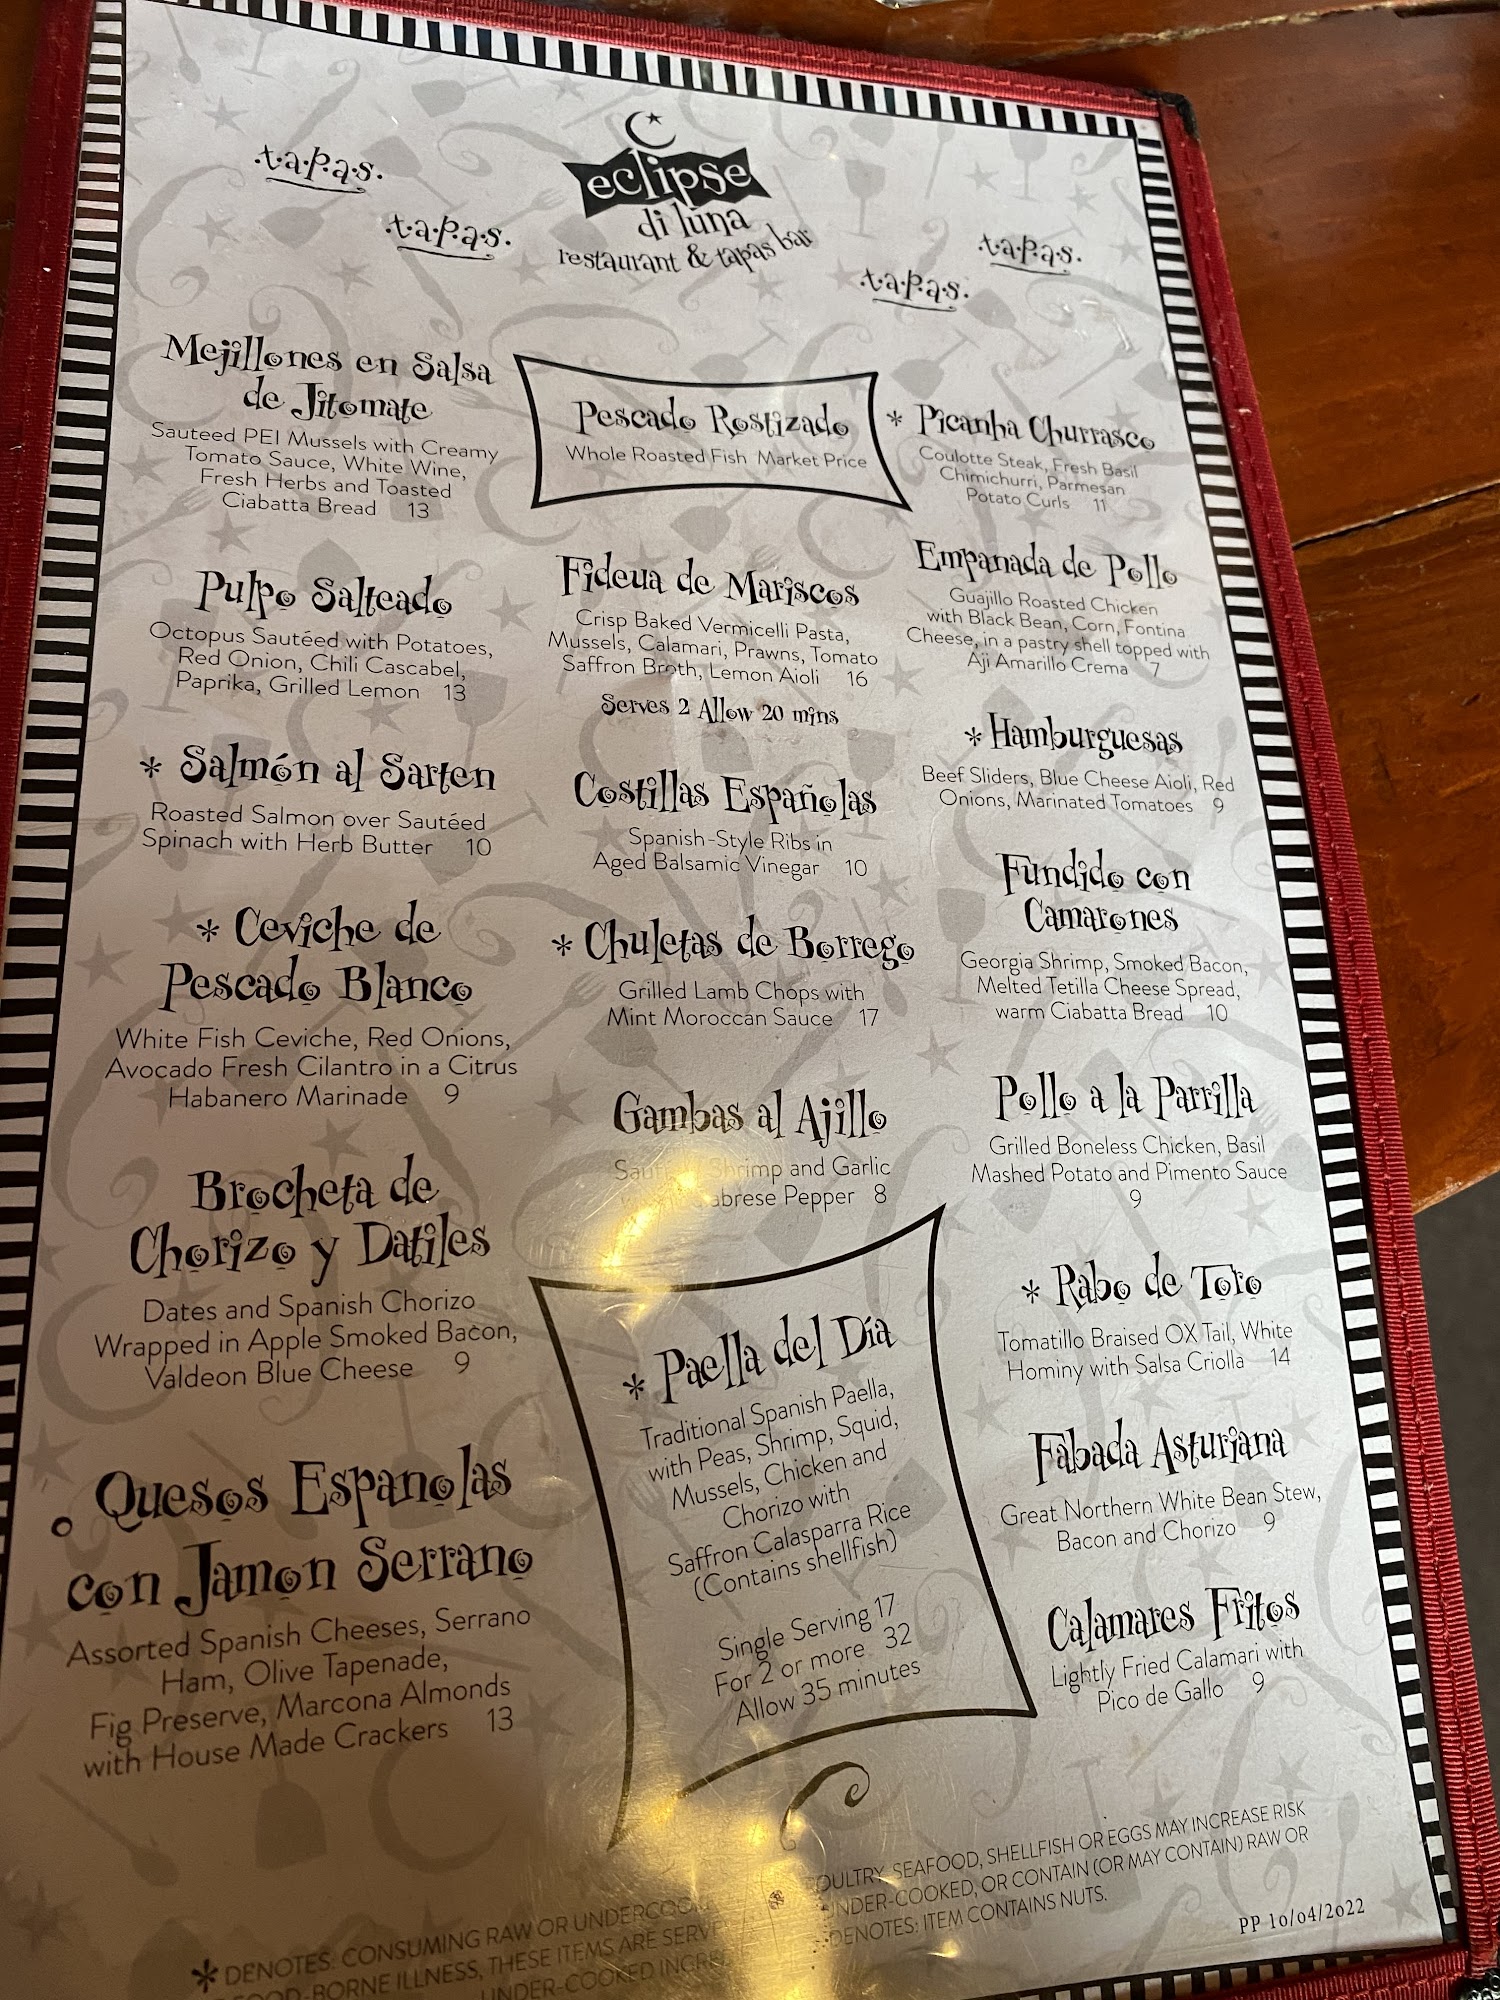 .t.a.p.a.s.
.t.a.p.a.s.
eclipse
di luna
restaurant & tapas bar
.t.a.p.a.s.
.t.a.p.a.s.
Mejillones en Salsa
de Jitomate
Sauteed PEI Mussels with Creamy
Tomato Sauce, White Wine,
Fresh Herbs and Toasted
Ciabatta Bread 13
Pulpo Salteado
Octopus Sautéed with Potatoes,
Red Onion, Chili Cascabel,
Paprika, Grilled Lemon 13
* Salmón al Sarten
Roasted Salmon over Sautéed
Spinach with Herb Butter 10
* Ceviche de
Pescado Blanco
White Fish Ceviche, Red Onions,
Avocado Fresh Cilantro in a Citrus
Habanero Marinade 9
Brocheta de
Chorizo y Datiles
Dates and Spanish Chorizo
Wrapped in Apple Smoked Bacon,
Valdeon Blue Cheese 9
Quesos Espanolas
con Jamon Serrano
Assorted Spanish Cheeses, Serrano
Ham, Olive Tapenade,
Fig Preserve, Marcona Almonds
with House Made Crackers 13
Pescado Rostizado
Whole Roasted Fish Market Price
Fideua de Mariscos
Crisp Baked Vermicelli Pasta,
Mussels, Calamari, Prawns, Tomato
Saffron Broth, Lemon Aioli 16
Serves 2 Allow 20 mins
Costillas Españolas
Spanish-Style Ribs in
Aged Balsamic Vinegar 10
* Chuletas de Borrego
Grilled Lamb Chops with
Mint Moroccan Sauce 17
Gambas al Ajillo
Shrimp and Garlic
Pepper 8
* Paella del Día
Traditional Spanish Paella,
with Peas, Shrimp, Squid,
Mussels, Chicken and
Chorizo with
Saffron Calasparra Rice
(Contains shellfish)
Single Serving 17
For 2 or more 32
Allow 35 minutes
* Picanha Churrasco
Coulotte Steak, Fresh Basil
Chimichurri, Parmesan
Potato Curls 11
Empanada de Pollo
Guajillo Roasted Chicken
with Black Bean, Corn, Fontina
Cheese, in a pastry shell topped with
Aji Amarillo Crema 7
* Hamburguesas
Beef Sliders, Blue Cheese Aioli, Red
Onions, Marinated Tomatoes 9
Fundido con
Camarones
Georgia Shrimp, Smoked Bacon,
Melted Tetilla Cheese Spread,
warm Ciabatta Bread 10
Pollo a la Parrilla
Grilled Boneless Chicken, Basil
Mashed Potato and Pimento Sauce
9
* Rabo de Toro
Tomatillo Braised OX Tail, White
Hominy with Salsa Criolla 14
Fabada Asturiana
Great Northern White Bean Stew,
Bacon and Chorizo 9
Calamares Fritos
Lightly Fried Calamari with
Pico de Gallo 9
* DENOTES: CONSUMING RAW OR POULTRY, SEAFOOD, SHELLFISH OR EGGS MAY INCREASE RISK
FOOD-BORNE ILLNESS, THESE ITEMS ARE UNDER-COOKED, OR CONTAIN (OR MAY CONTAIN) RAW OR
UNDER-COOKED DENOTES: ITEM CONTAINS NUTS.
PP 10/04/2022